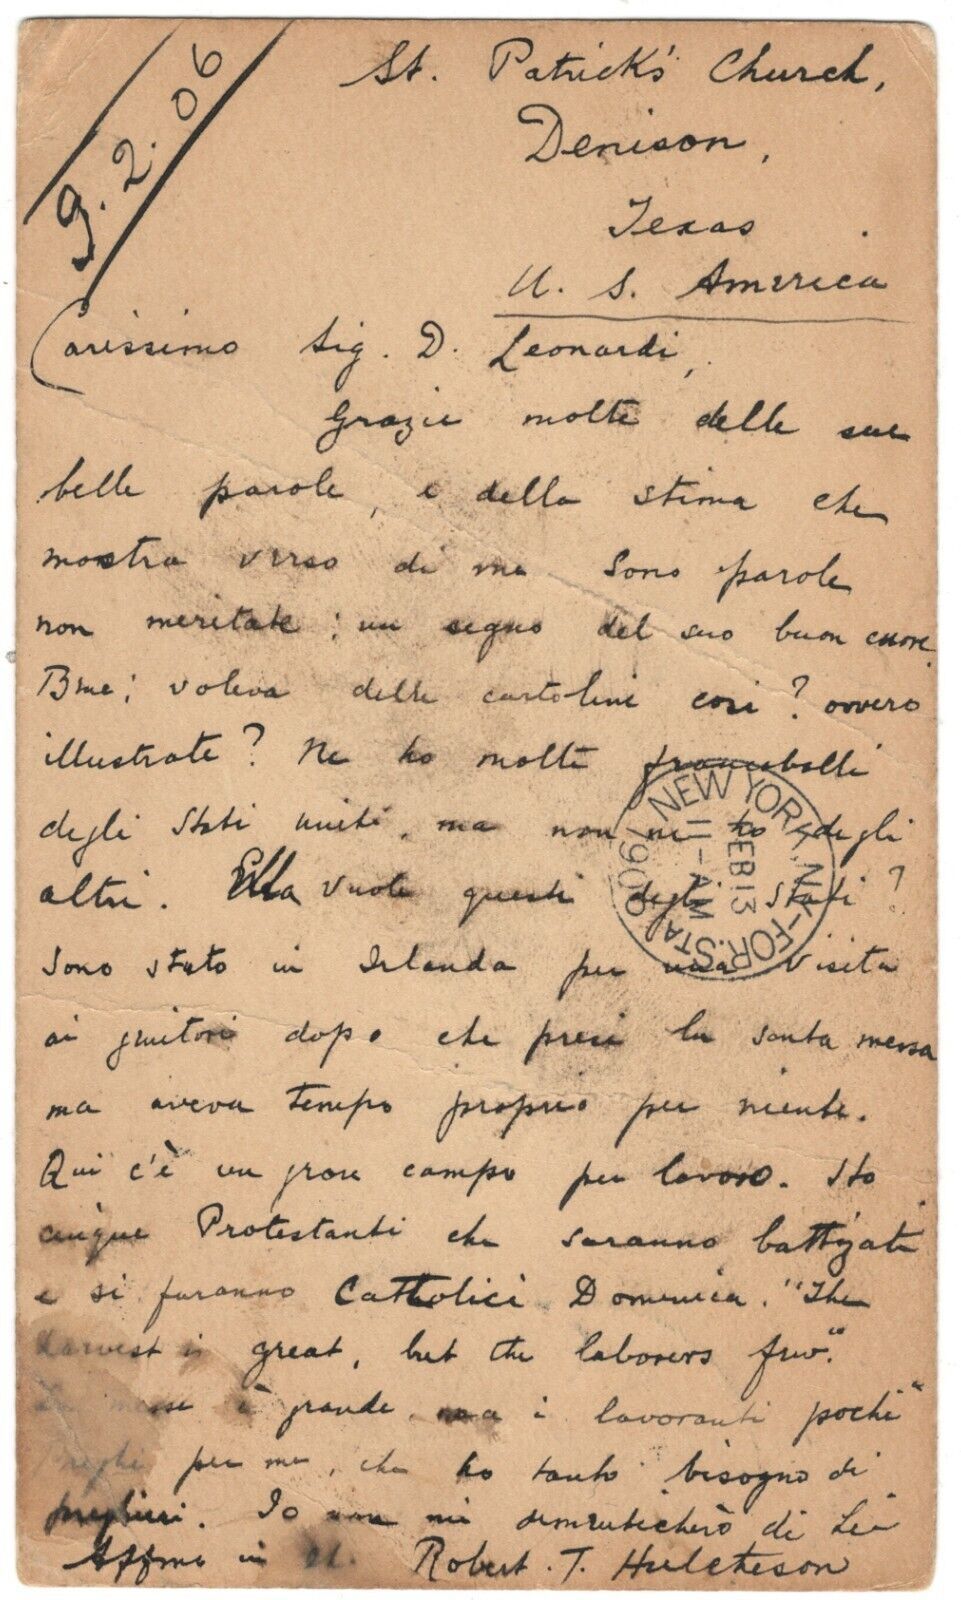 9.2.06
St. Patrick's Church,
Denison,
Texas
U. S. America
Carissimo Sig. D. Leonardi,
Grazie molte delle sue
belle parole, e della stima che
mostra verso di me Sono parole
non meritate; un segno del suo buon cuore.
Bene; voleva delle cartoline così? ovvero
illustrate? Ne ho molte francobolli
degli Stati uniti, ma non ne ho degli
altri. Ella vuole questi degli Stati?
Sono stato in Irlanda per una visita
ai genitori dopo che presi la santa messa
ma aveva tempo proprio per niente.
Qui c'è un gran campo per lavoro. Sto
cinque Protestanti che saranno battizati
e si faranno Cattolici Domenica. "The
harvest is great, but the laborers few."
messe è grande, ma i lavoranti pochi"
Preghi per me, che ho tanto bisogno di
preghieri. Io non mi dimenticherò di Lei
Affmo in Robert. T. Hutcheson
NEW YORK, N.Y.-FOR.STA.
FEB 13
11-AM
1906